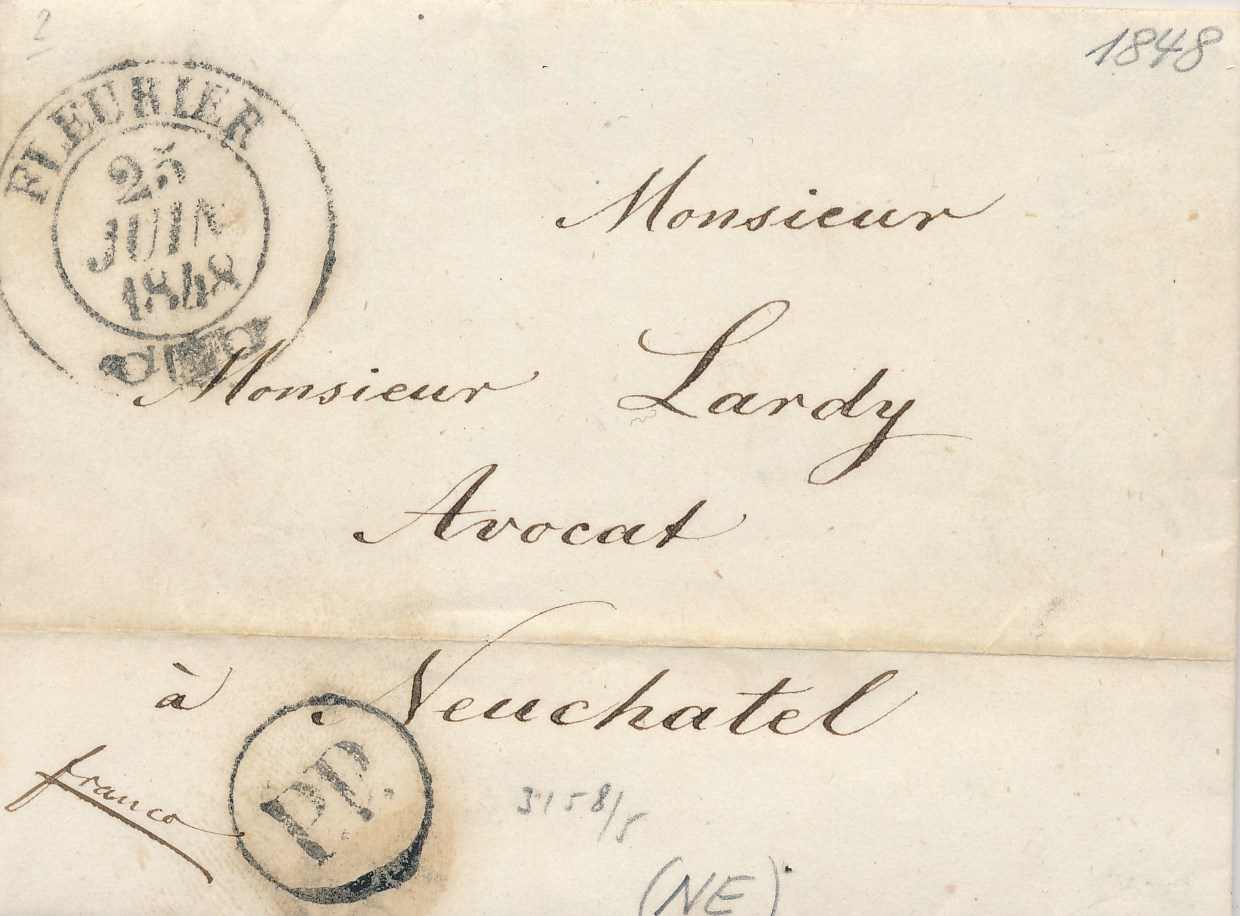 2
1848
FLEURIER
25
JUIN
1848
Monsieur
Monsieur Lardy
Avocat
à Neuchatel
franco
PP.
3158/5
(NE)